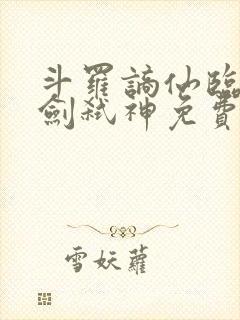 斗羅謫仙臨
劍弒神免費
雪妖蘿